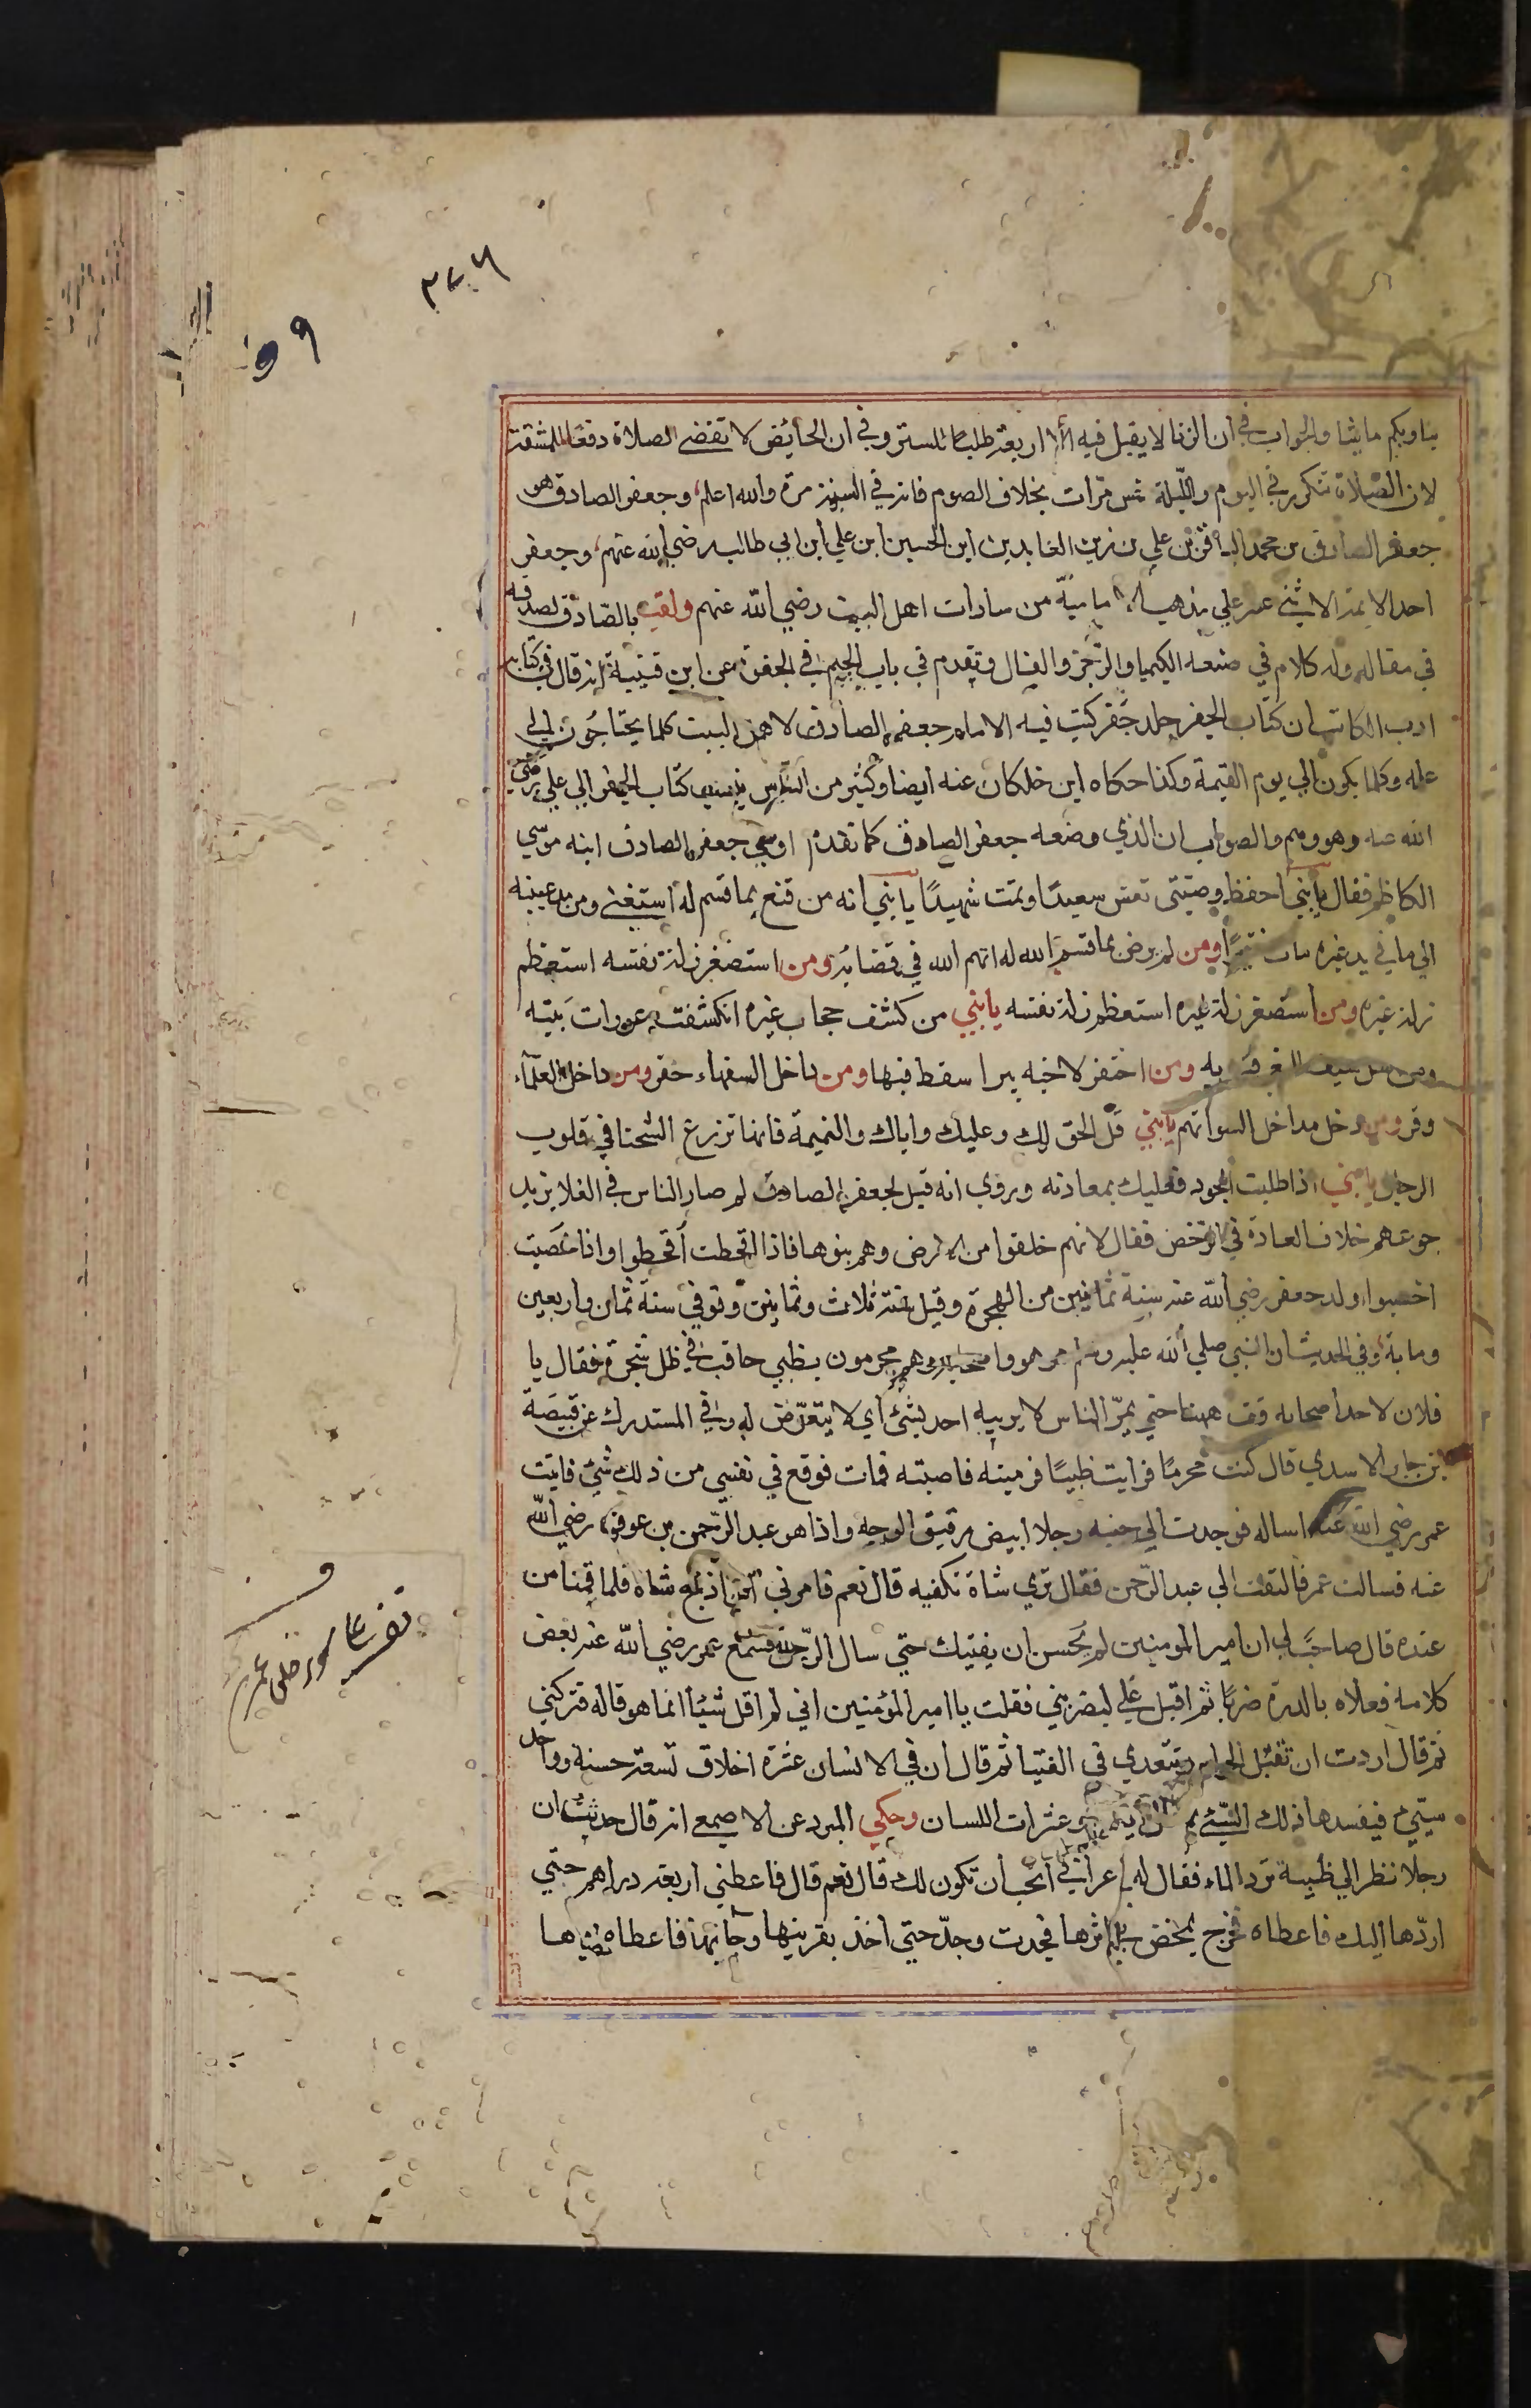 ٣٧٦
٩٩
بنا وبكم ما يشا والجواب في ان الزنا لا يقبل فيه الا اربعة طلبا للستر وفي ان الحائض لا تقضي الصلاة دفعا للمشقة
لان الصلاة تتكرر في اليوم والليلة خمس مرات بخلاف الصوم فانه في السنة مرة والله اعلم وجعفر الصادق هو
جعفر الصادق بن محمد الباقر بن علي بن زين العابدين ابن الحسين ابن علي ابن ابي طالب رضي الله عنهم وجعفر
احد الايمة الاثني عشر علي مذهب الامامية من سادات اهل البيت رضي الله عنهم ولقب بالصادق لصدقه
في مقاله وله كلام في صنعه الكيميا والزجر والفال وتقدم في باب الجيم في الجفرة عن ابن قتيبة انه قال في كتابه
ادب الكاتب ان كتاب الجفر جلد جفر كتب فيه الامام جعفر الصادق لاهل البيت كلما يحتاجون الي
علمه وكلما يكون الي يوم القيمة وكذا حكاه ابن خلكان عنه ايضا وكثير من الناس ينسب كتاب الجفر الي علي رضي
الله عنه وهو وهم والصواب ان الذي وضعه جعفر الصادق كما تقدم اوصي جعفر الصادق ابنه موسي
الكاظم فقال يا بني احفظ وصيتي تعش سعيدا وتمت شهيدا يا بني انه من قنع بما قسم له استغني ومن مد عينيه
الي ما في يد غيره مات فقيرا ومن لم يرض بما قسم الله له اتهم الله في قضائه ومن استصغر زلة نفسه استعظم
زلة غيره ومن استصغر زلة غيره استعظم زلة نفسه يا بني من كشف حجاب غيره انكشفت عورات بيته
ومن سل سيف البغي قتل به ومن احتفر لاخيه بيرا سقط فيها ومن داخل السفهاء حقر ومن داخل العلماء
وقر ومن دخل مداخل السو اتهم يا بني قل الحق لك وعليك واياك والنميمة فانها تزرع الشحنا في قلوب
الرجال يا بني اذا طلبت الجود فعليك بمعادنه وروي انه قيل لجعفر الصادق لم صار الناس في الغلا يزيد
جوعهم خلاف العادة في الرخص فقال لانهم خلقوا من الارض وهم بنوها فاذا اقحطت اقحطوا واذا خصبت
اخصبوا ولد جعفر رضي الله عنه سنة ثمانين من الهجرة وقيل سنة ثلاث وثمانين وتوفي سنة ثمان واربعين
وماية وفي الحديث ان النبي صلي الله عليه وسلم مر هو واصحابه وهم محرمون بظبي حاقف في ظل شجرة فقال يا
فلان لاحد اصحابه قف ههنا حتي يمر الناس لا يريبه احد بشئ اي لا يتعرض له وفي المستدرك عن قبيصة
ابن جابر الاسدي قال كنت محرما فرايت ظبيا فرميته فاصبته فمات فوقع في نفسي من ذلك شئ فاتيت
عمر رضي الله عنه اساله فوجدت الي جنبه رجلا ابيض رقيق الوجه واذا هو عبد الرحمن بن عوف رضي الله
عنه فسالت عمر فالتفت الي عبد الرحمن فقال تري شاة تكفيه قال نعم فامرني ان اذبح شاة فلما قمنا من
عنده قال صاحب لي ان امير المومنين لم يحسن ان يفتيك حتي سال الرجل فسمع عمر رضي الله عنه بعض
كلامه فعلاه بالدرة ضربا ثم اقبل علي ليضربني فقلت يا امير المؤمنين اني لم اقل شيئا انما هو قاله فتركني
ثم قال اردت ان تقتل الحرام وتتعدي في الفتيا ثم قال ان في الانسان عشرة اخلاق تسعة حسنة وواحد
سيئ فيفسدها ذلك السيئ ثم وعثرات اللسان وحكي المبرد عن الاصمعي انه قال حدثت ان
رجلا نظر الي ظبية ترد الماء فقال له اعرابي اتحب ان تكون لك قال نعم قال فاعطني اربعة دراهم حتي
اردها اليك فاعطاه فخرج يمحض في اثرها فجدت وجد حتي اخذ بقرنيها وجا بها فاعطاه